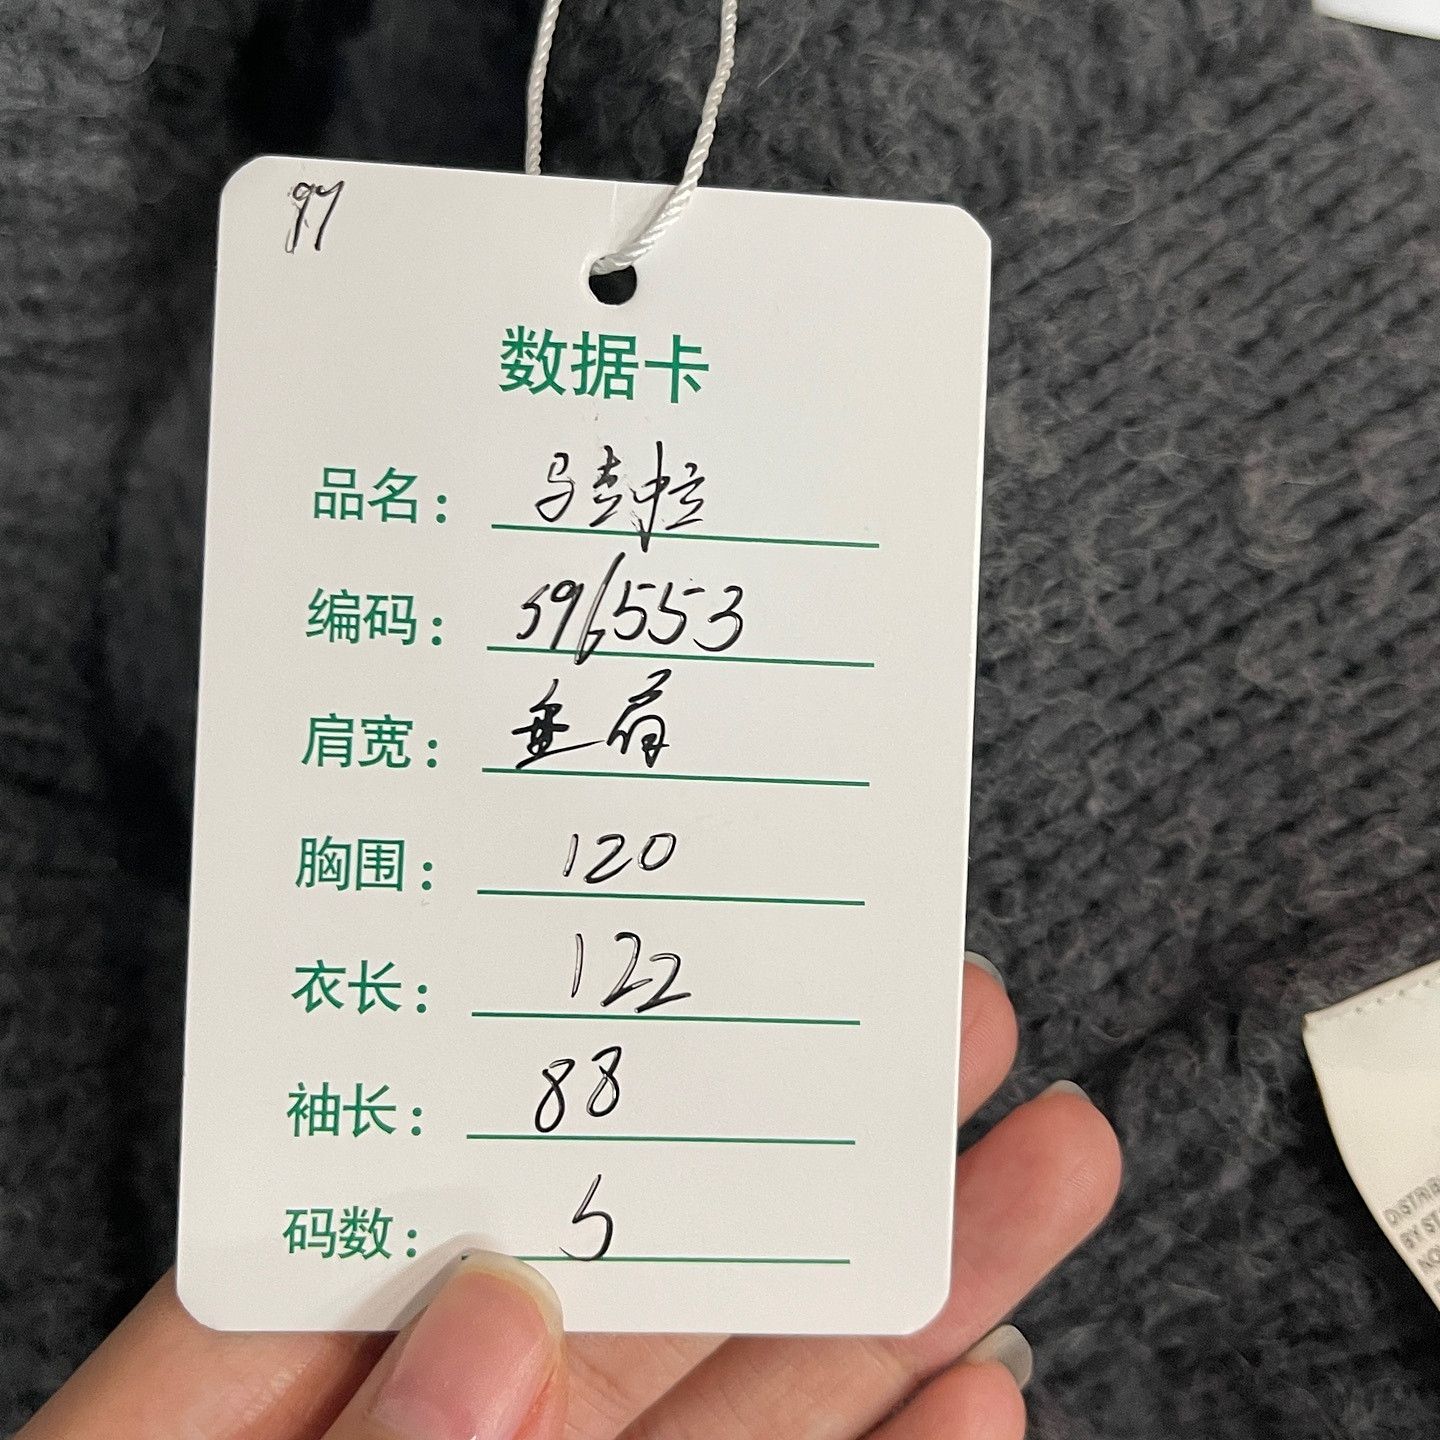 97
数据卡
品名：马克中拉
编码：596553
肩宽：
胸围：120
衣长：122
袖长：88
码数：S
DISTRIB
BY ST
NO